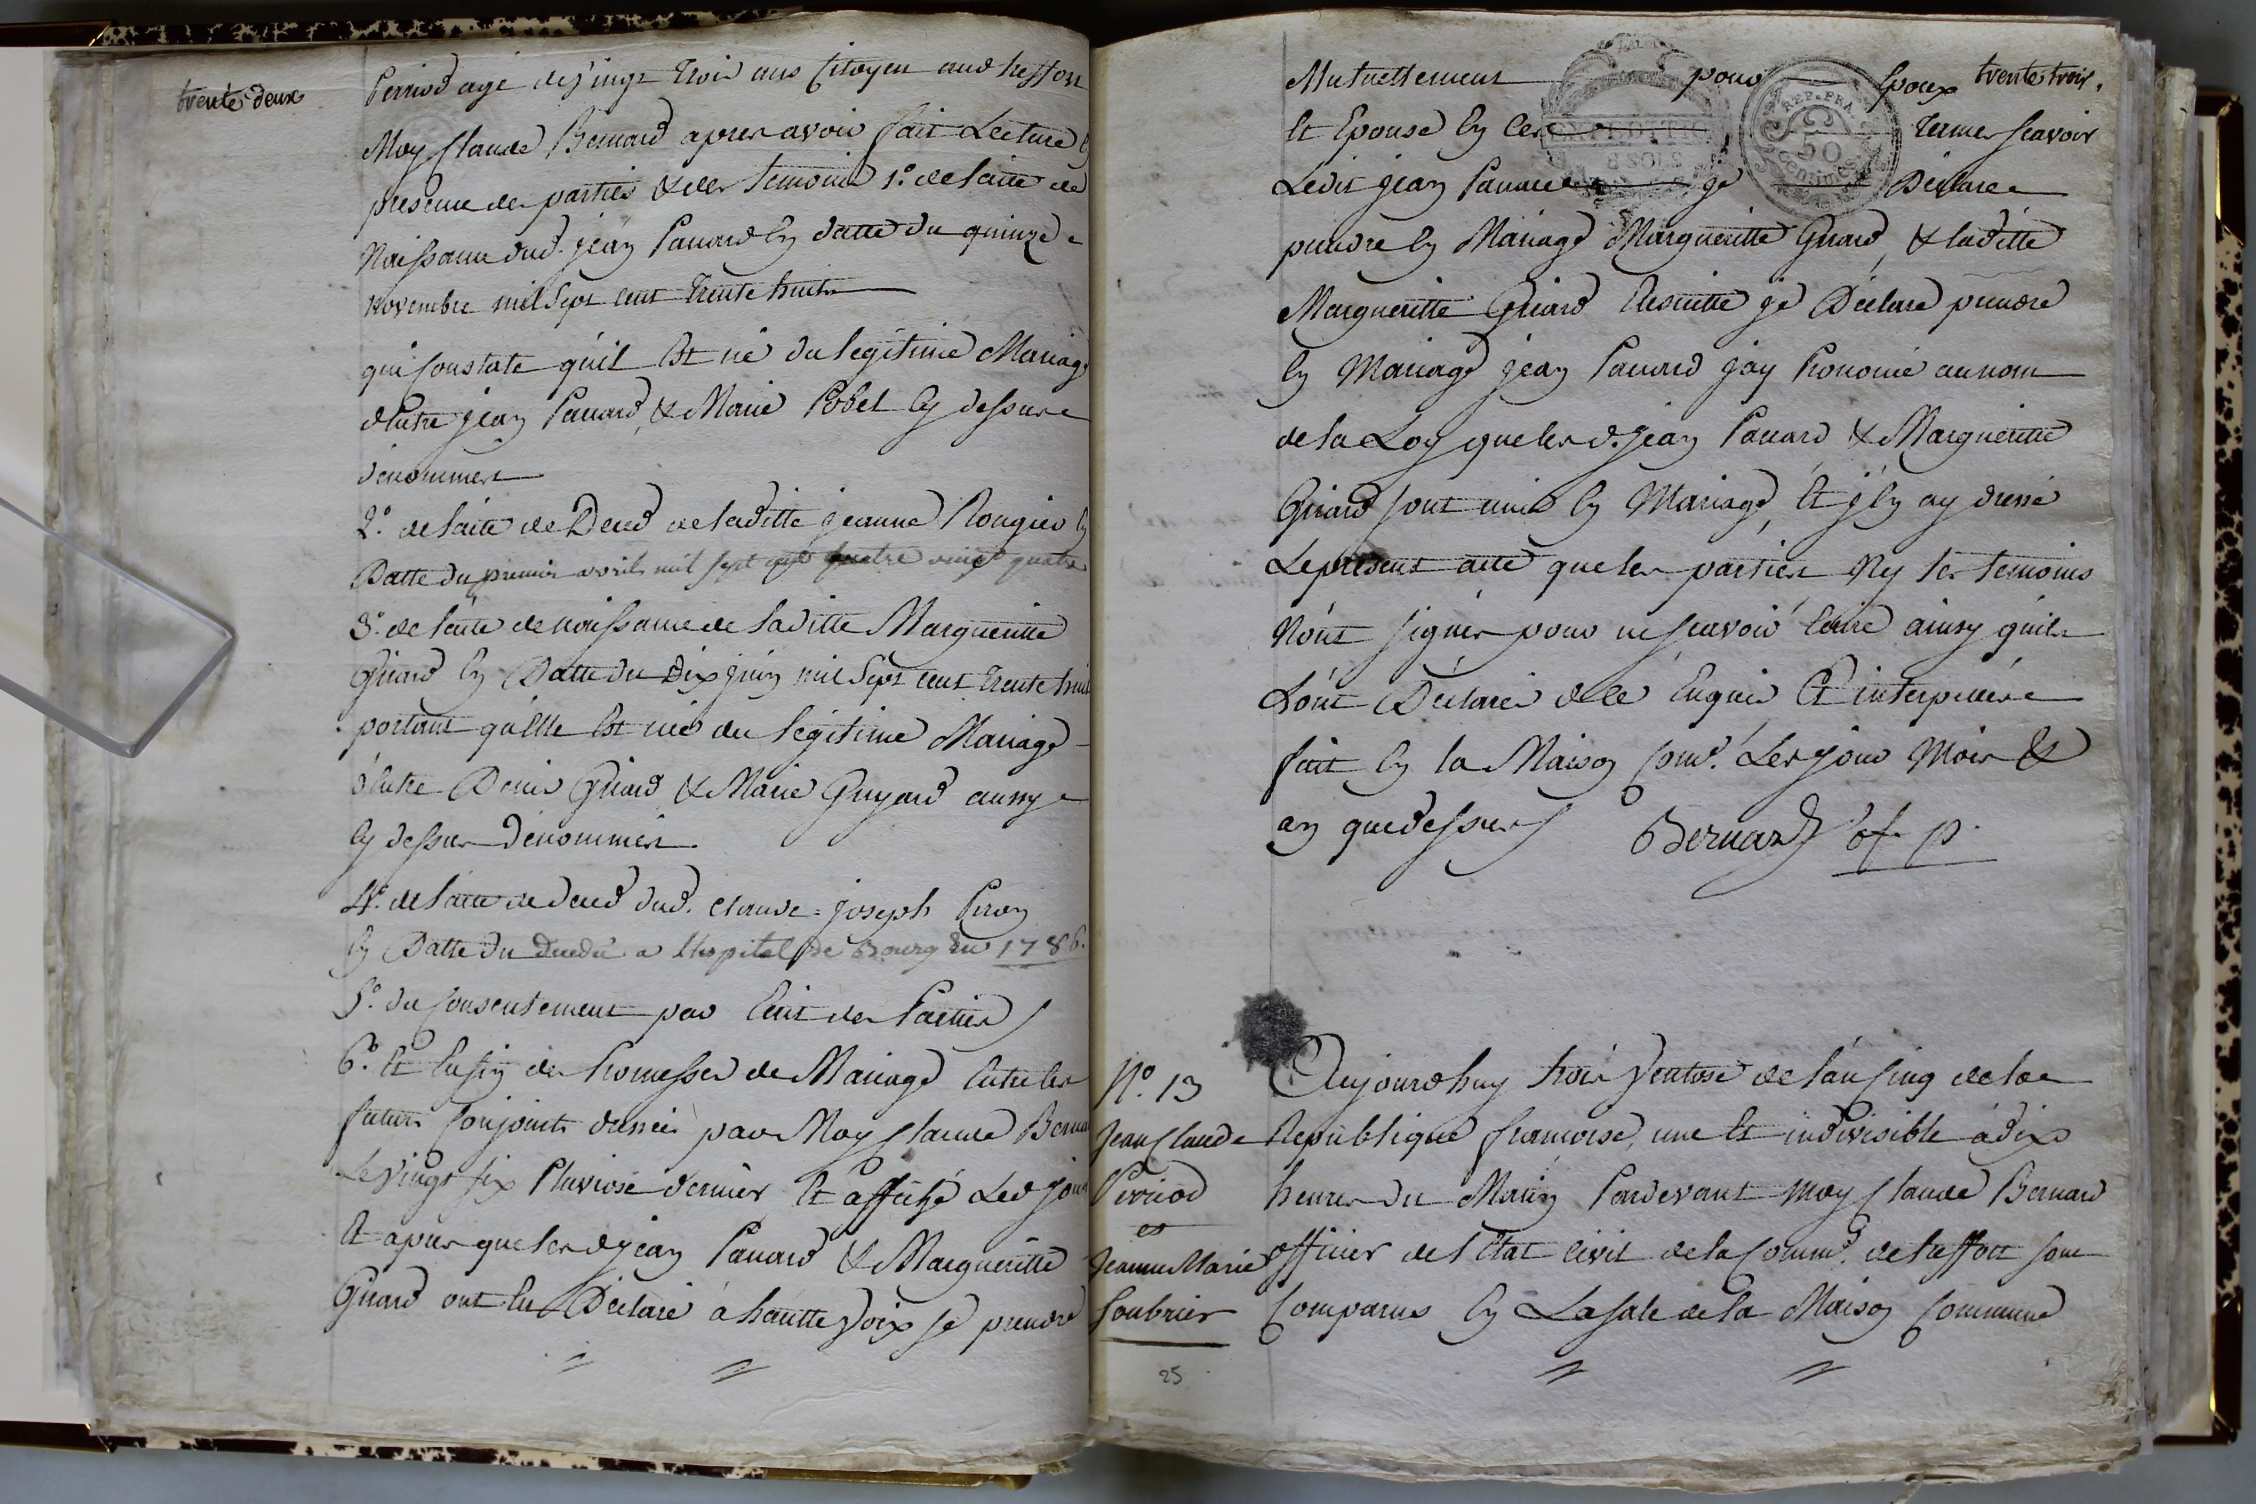 trente deux
Perriod agé de vingt trois ans Citoyen aud treffort
Moy Claude Bernard apres avoir fait Lecture En
presence des parties & des temoins 1.o de l'acte de
Naissance dud. jean Panard En datte du quinze
Novembre mil sept cent trente huit
qui Constate qu'il Est né du legitime Mariage
d'Entre jean Panard & Marie Pobel Cy dessus
denommes
2.o de l'acte de Deced de laditte jeanne Rougier En
Datte du premier avril mil sept cent quatre vingt quatre
3.o de l'acte de naissance de laditte Margueritte
Guiard En Datte du Dix juin mil sept cent trente huit
portant qu'Elle Est née du legitime Mariage
d'Entre Denis Guiard & Marie Guyard aussy
Cy dessus dénommés.
4.o de l'acte de deced dud. Claude = joseph Piron
En Datte du Decedé a l'hopital de Bourg En 1786.
5.o du Consentement par Ecrit des Parties
6.o Et Enfin des Promesses de Mariage Entre les
futurs Conjoints dressée par Moy Claude Bernard
Le vingt six Pluviose dernier Et affiché Led jour
Et apres que les d jean Panard & Margueritte
Guiard ont Eu Déclaré a hautte voix se prendre
trente trois.
Mutuellement pour Epoux
Et Epouse En ces termes scavoir
Ledit jean Panard je Déclare
prendre En Mariage Margueritte Guiard, & laditte
Margueritte Guiard Ensuitte je Déclare prendre
En Mariage jean Panard jay Prononcé au nom
de la Loy que les d. jean Panard & Margueritte
Guiard sont unis En Mariage, Et j'En ay dressé
Le présent acte que les parties Ny les temoins
N'ont signés pour ne scavoir Ecrire ainsy qu'ils
L'ont Déclaré de ce Enquis Et interpellés
fait En la Maison Com.e Les jour Mois &
an que dessus Bernard of. p.
N.o 13
Jean Claude
Perriod
et
Jeanne Marie
Soubrier
25
Aujourdhuy trois Ventose de l'an cinq de la
Republique francoise, une Et indivisible à dix
heures du Matin Pardevant moy Claude Bernard
officier de l'Etat civil de la Comm.e de treffort sont
Comparus En La sale de la Maison Commune
REP. FRA.
50
Centimes
8 SOLS